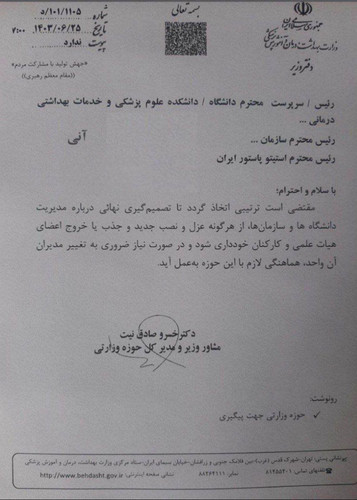 بسمه تعالی
جمهوری اسلامی ایران
وزارت بهداشت، درمان و آموزش پزشکی
دفتر وزیر
شماره ۵/۱۰۱/۱۱۰۵
تاریخ ۱۴۰۳/۰۶/۲۵
پیوست ندارد
«جهش تولید با مشارکت مردم»
((مقام معظم رهبری))
رئیس / سرپرست محترم دانشگاه / دانشکده علوم پزشکی و خدمات بهداشتی
درمانی ...
آنی
رئیس محترم سازمان ...
رئیس محترم انستیتو پاستور ایران
با سلام و احترام؛
مقتضی است ترتیبی اتخاذ گردد تا تصمیم‌گیری نهائی درباره مدیریت
دانشگاه ها و سازمان‌ها، از هرگونه عزل و نصب جدید و جذب یا خروج اعضای
هیات علمی و کارکنان خودداری شود و در صورت نیاز ضروری به تغییر مدیران
آن واحد، هماهنگی لازم با این حوزه به‌عمل آید.
دکتر خسرو صادق نیت
مشاور وزیر و مدیر کل حوزه وزارتی
رونوشت:
✓ حوزه وزارتی جهت پیگیری
نشانی پستی: تهران، شهرک قدس (غرب)-بین فلامک جنوبی و زرافشان-خیابان سیمای ایران-ستاد مرکزی وزارت بهداشت، درمان و آموزش پزشکی
نشانی صفحه اینترنتی: http://www.behdasht.gov.ir